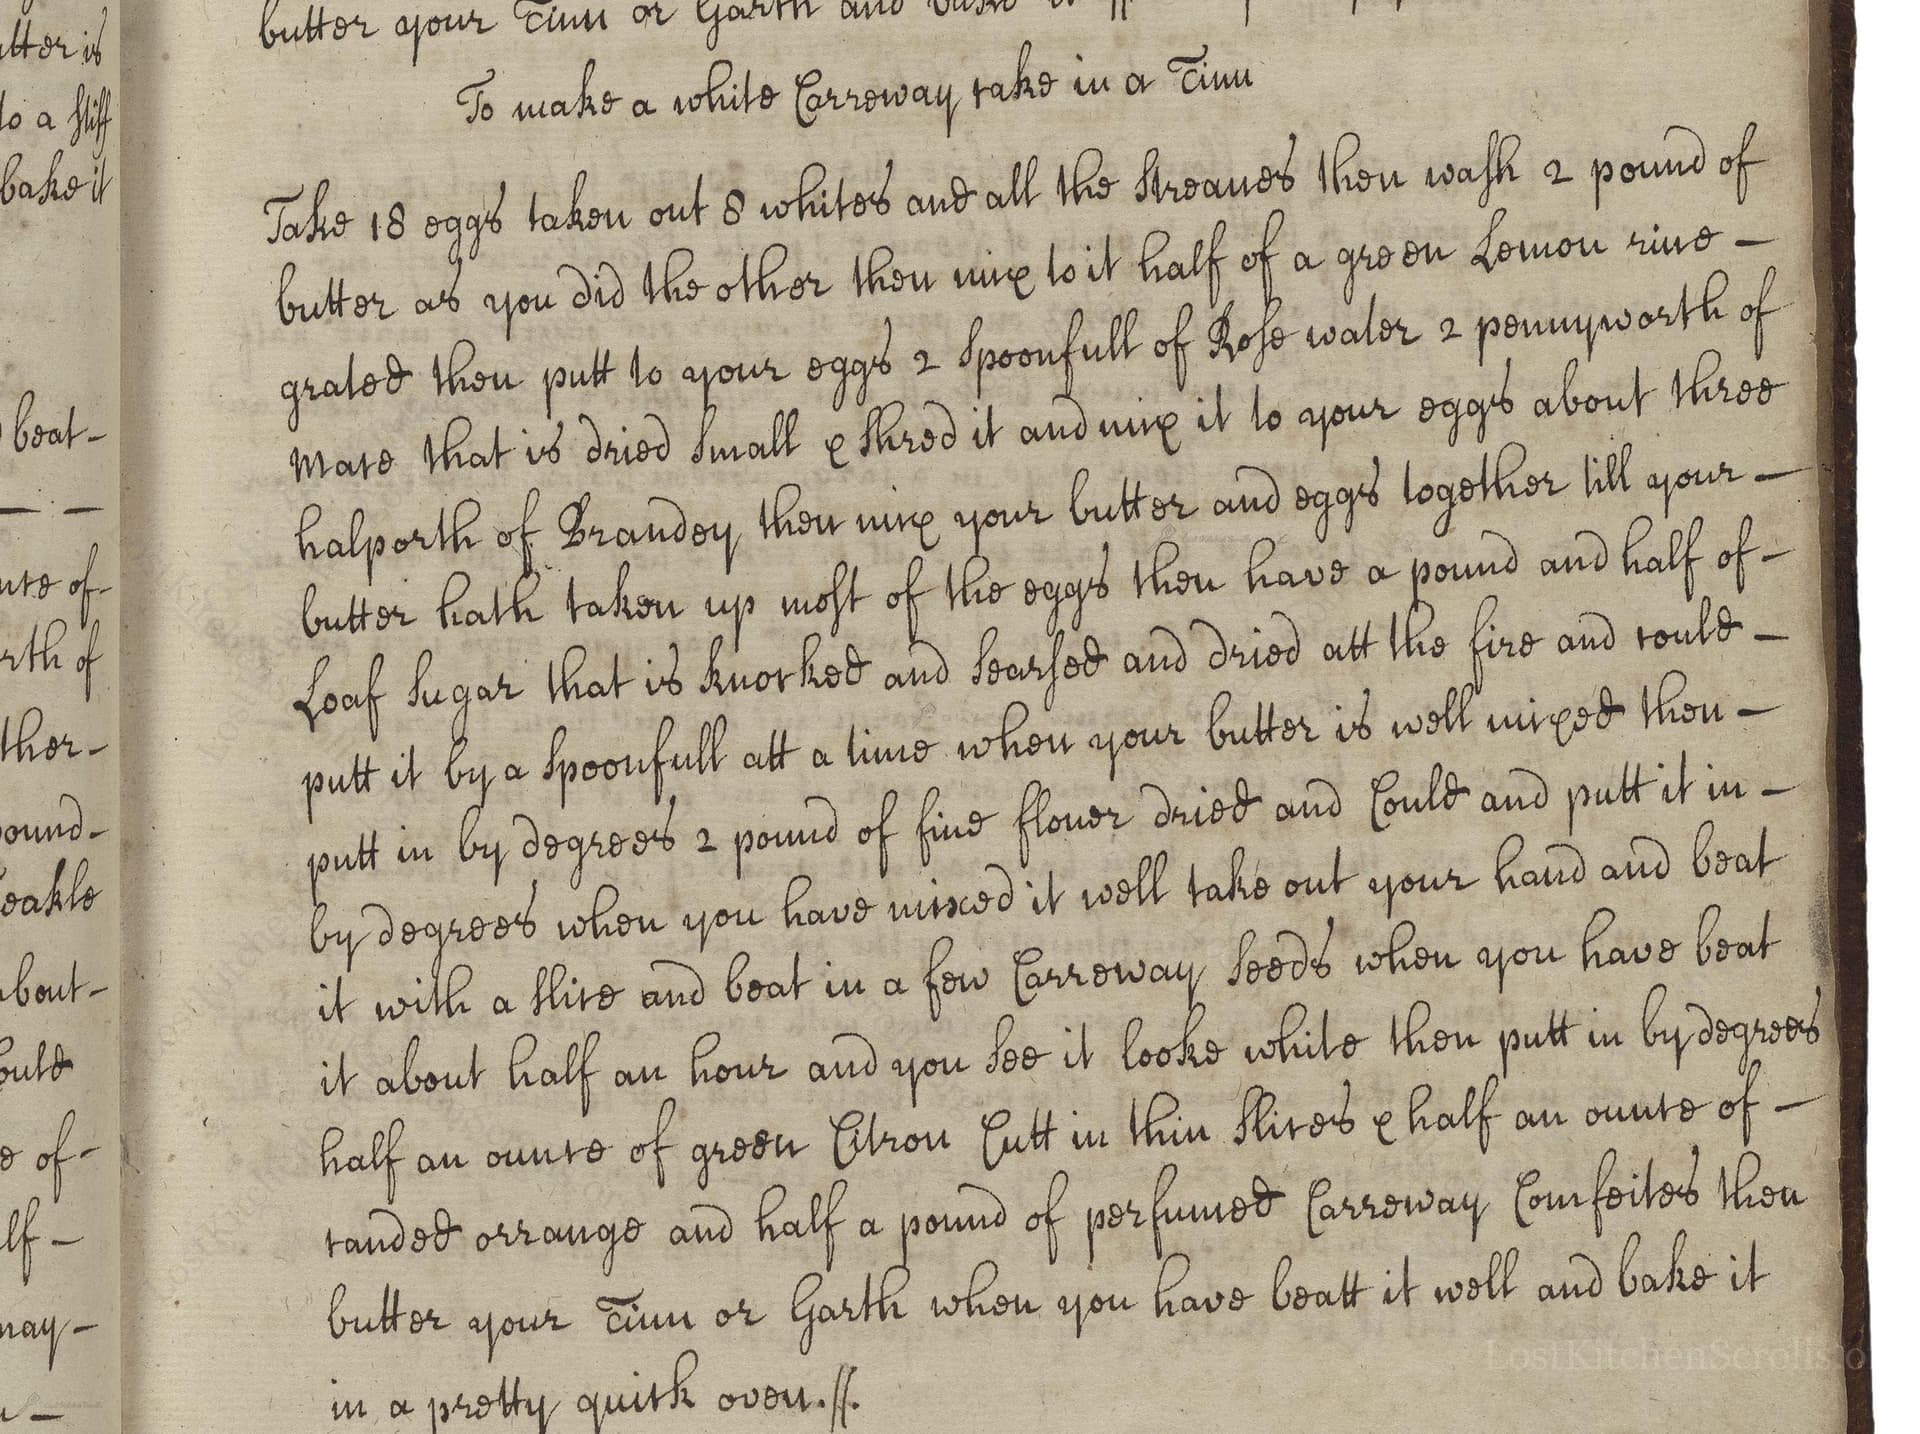 butter your Tinn or Garth and bake it //
To make a white Carreway cake in a Tinn
Take 18 eggs taken out 8 whites and all the streanes then wash 2 pound of
butter as you did the other then mix to it half of a green Lemon rine –
grated then putt to your eggs 2 spoonfull of Rose water 2 pennyworth of
Mace that is dried small & shred it and mix it to your eggs about three
halporth of Brandey then mix your butter and eggs together till your –
butter hath taken up most of the eggs then have a pound and half of –
Loaf sugar that is knocked and searsed and dried att the fire and could –
putt it by a spoonfull att a time when your butter is well mixed then –
putt in by degrees 2 pound of fine flouer dried and Could and putt it in –
by degrees when you have mixed it well take out your hand and beat
it with a slice and beat in a few Carreway seeds when you have beat
it about half an hour and you see it looke white then putt in by degrees
half an ounce of green Citron Cutt in thin slices & half an ounce of –
canded orrange and half a pound of perfumed Carreway Comfeites then
butter your Tinn or Garth when you have beatt it well and bake it
in a pretty quick oven.//.
utter is
to a stiff
bake it
beat –
of –
rth of
ther –
pound –
about –
ould
of –
alf –
may –
LostKitchenScrolls